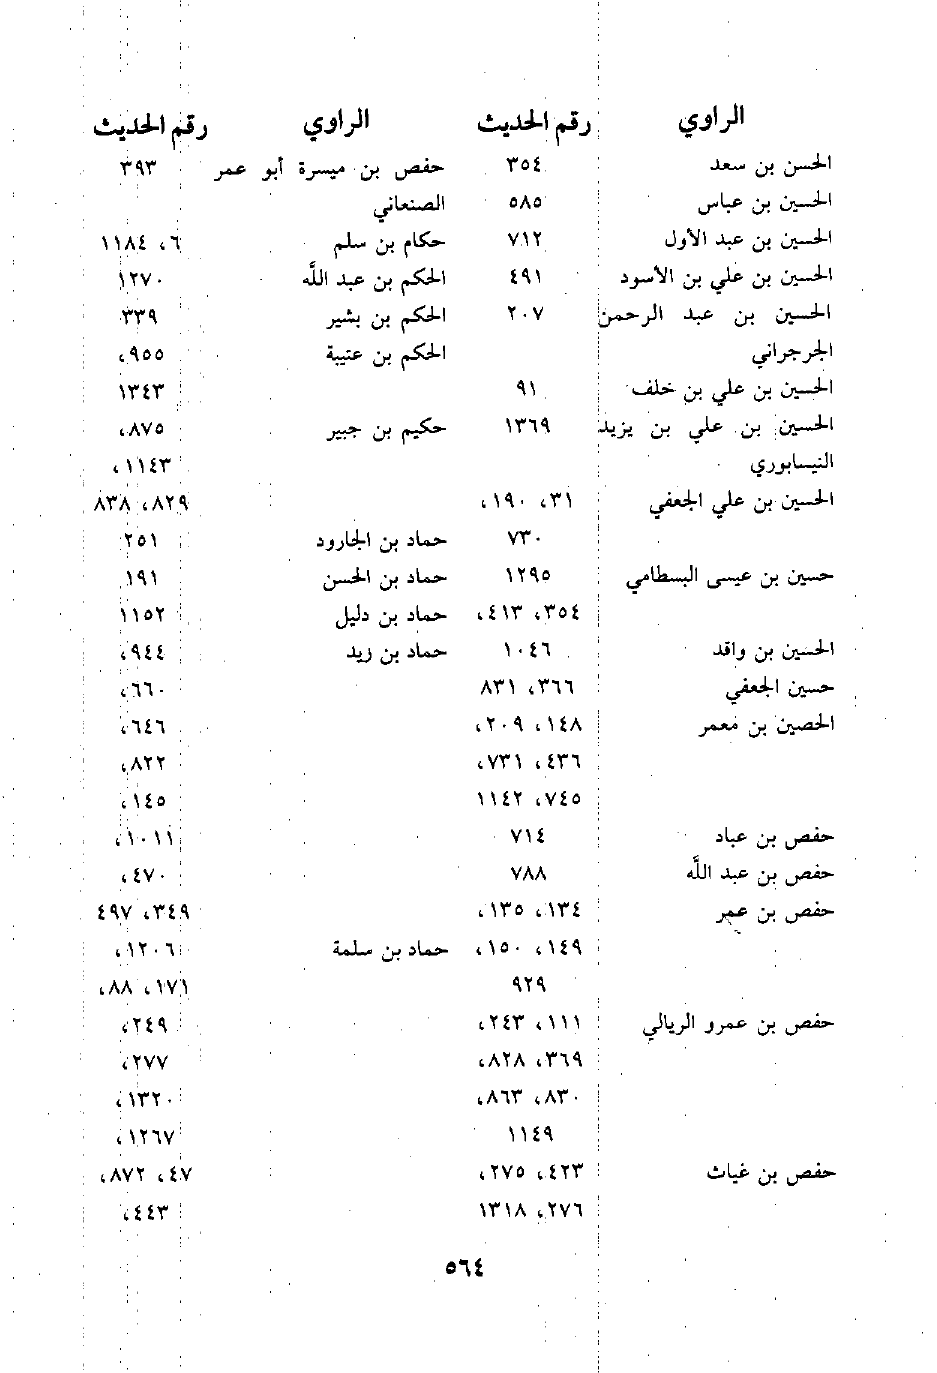 الراوي رقم الحديث
الحسن بن سعد ٣٥٤
الحسين بن عباس ٥٨٥
الحسين بن عبد الأول ٧١٢
الحسين بن علي بن الأسود ٤٩١
الحسين بن عبد الرحمن ٢٠٧
الجرجراني
الحسين بن علي بن خلف ٩١
الحسين بن علي بن يزيد ١٣٦٩
النيسابوري
الحسين بن علي الجعفي ٣١، ١٩٠،
٧٣٠
حسين بن عيسى البسطامي ١٢٩٥
٣٥٤، ٤١٣،
الحسين بن واقد ١٠٤٦
حسين الجعفي ٣٦٦، ٨٣١
الحصين بن معمر ١٤٨، ٢٠٩،
٤٣٦، ٧٣١،
٧٤٥، ١١٤٢
حفص بن عباد ٧١٤
حفص بن عبد اللَّه ٧٨٨
حفص بن عمر ١٣٤، ١٣٥،
١٤٩، ١٥٠،
٩٢٩
حفص بن عمرو الريالي ١١١، ٢٤٣،
٣٦٩، ٨٢٨،
٨٣٠، ٨٦٣،
١١٤٩
حفص بن غياث ٤٢٣، ٢٧٥،
٢٧٦، ١٣١٨
الراوي رقم الحديث
حفص بن ميسرة أبو عمر ٣٩٣
الصنعاني
حكام بن سلم ٦، ١١٨٤
الحكم بن عبد اللَّه ١٢٧٠
الحكم بن بشير ٣٣٩
الحكم بن عتيبة ٩٥٥،
١٣٤٣
حكيم بن جبير ٨٧٥،
١١٤٣،
٨٢٩، ٨٣٨
حماد بن الجارود ٢٥١
حماد بن الحسن ١٩١
حماد بن دليل ١١٥٢
حماد بن زيد ٩٤٤،
٦٦٠،
٦٤٦،
٨٢٢،
١٤٥،
١٠١١،
٤٧٠،
٣٤٩، ٤٩٧
حماد بن سلمة ١٢٠٦،
١٧١، ٨٨،
٢٤٩،
٢٧٧،
١٣٢٠،
١٢٦٧،
٤٧، ٨٧٢،
٤٤٣،
٥٦٤